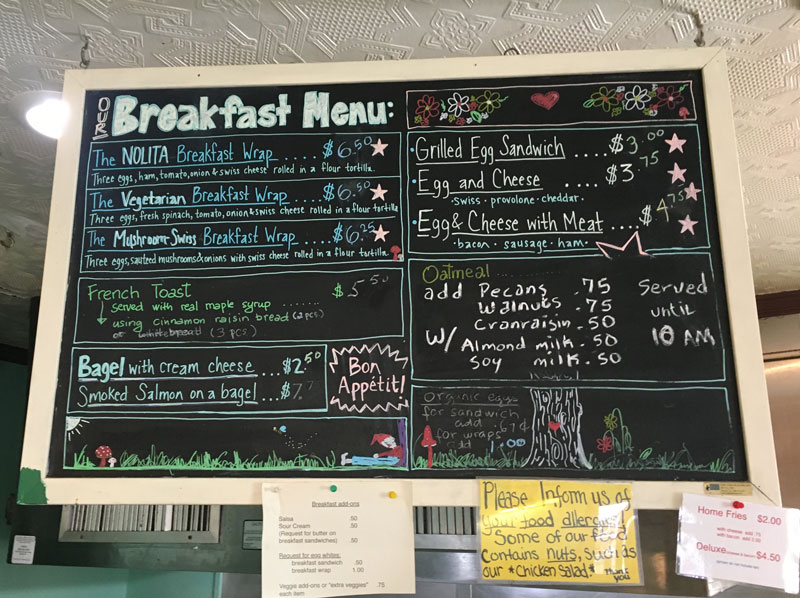 OUR Breakfast Menu:
The NOLITA Breakfast Wrap .... $6.50
Three eggs, ham, tomato, onion & swiss cheese rolled in a flour tortilla.
The Vegetarian Breakfast Wrap ... $6.50
Three eggs, fresh spinach, tomato, onion & swiss cheese rolled in a flour tortilla
The Mushroom-Swiss Breakfast Wrap .... $6.25
Three eggs, sautéed mushrooms & onions with swiss cheese rolled in a flour tortilla.
French Toast $5.50
served with real maple syrup .......
using cinnamon raisin bread (2 pcs)
or white bread (3 pcs)
Bagel with cream cheese ... $2.50
Smoked Salmon on a bagel ... $7
Bon
Appétit!
Grilled Egg Sandwich .... $3.00
Egg and Cheese .... $3.75
swiss · provolone · cheddar ·
Egg & Cheese with Meat .... $4.75
· bacon · sausage · ham ·
Oatmeal
add Pecans .75
Walnuts .75
Cranraisin .50
w/ Almond milk .50
Soy milk .50
Served
until
10 AM
Organic eggs
for sandwich
add .67¢
for wraps
add 1.00
Breakfast add-ons
Salsa .50
Sour Cream .50
(Request for butter on
breakfast sandwiches) .50
Request for egg whites:
breakfast sandwich .50
breakfast wrap 1.00
Veggie add-ons or "extra veggies" .75
each item
Please Inform us of
your food allergies!
Some of our food
contains nuts, such as
our *Chicken Salad.*
Thank you
Home Fries $2.00
with cheese add .75
with bacon add
Deluxe $4.50